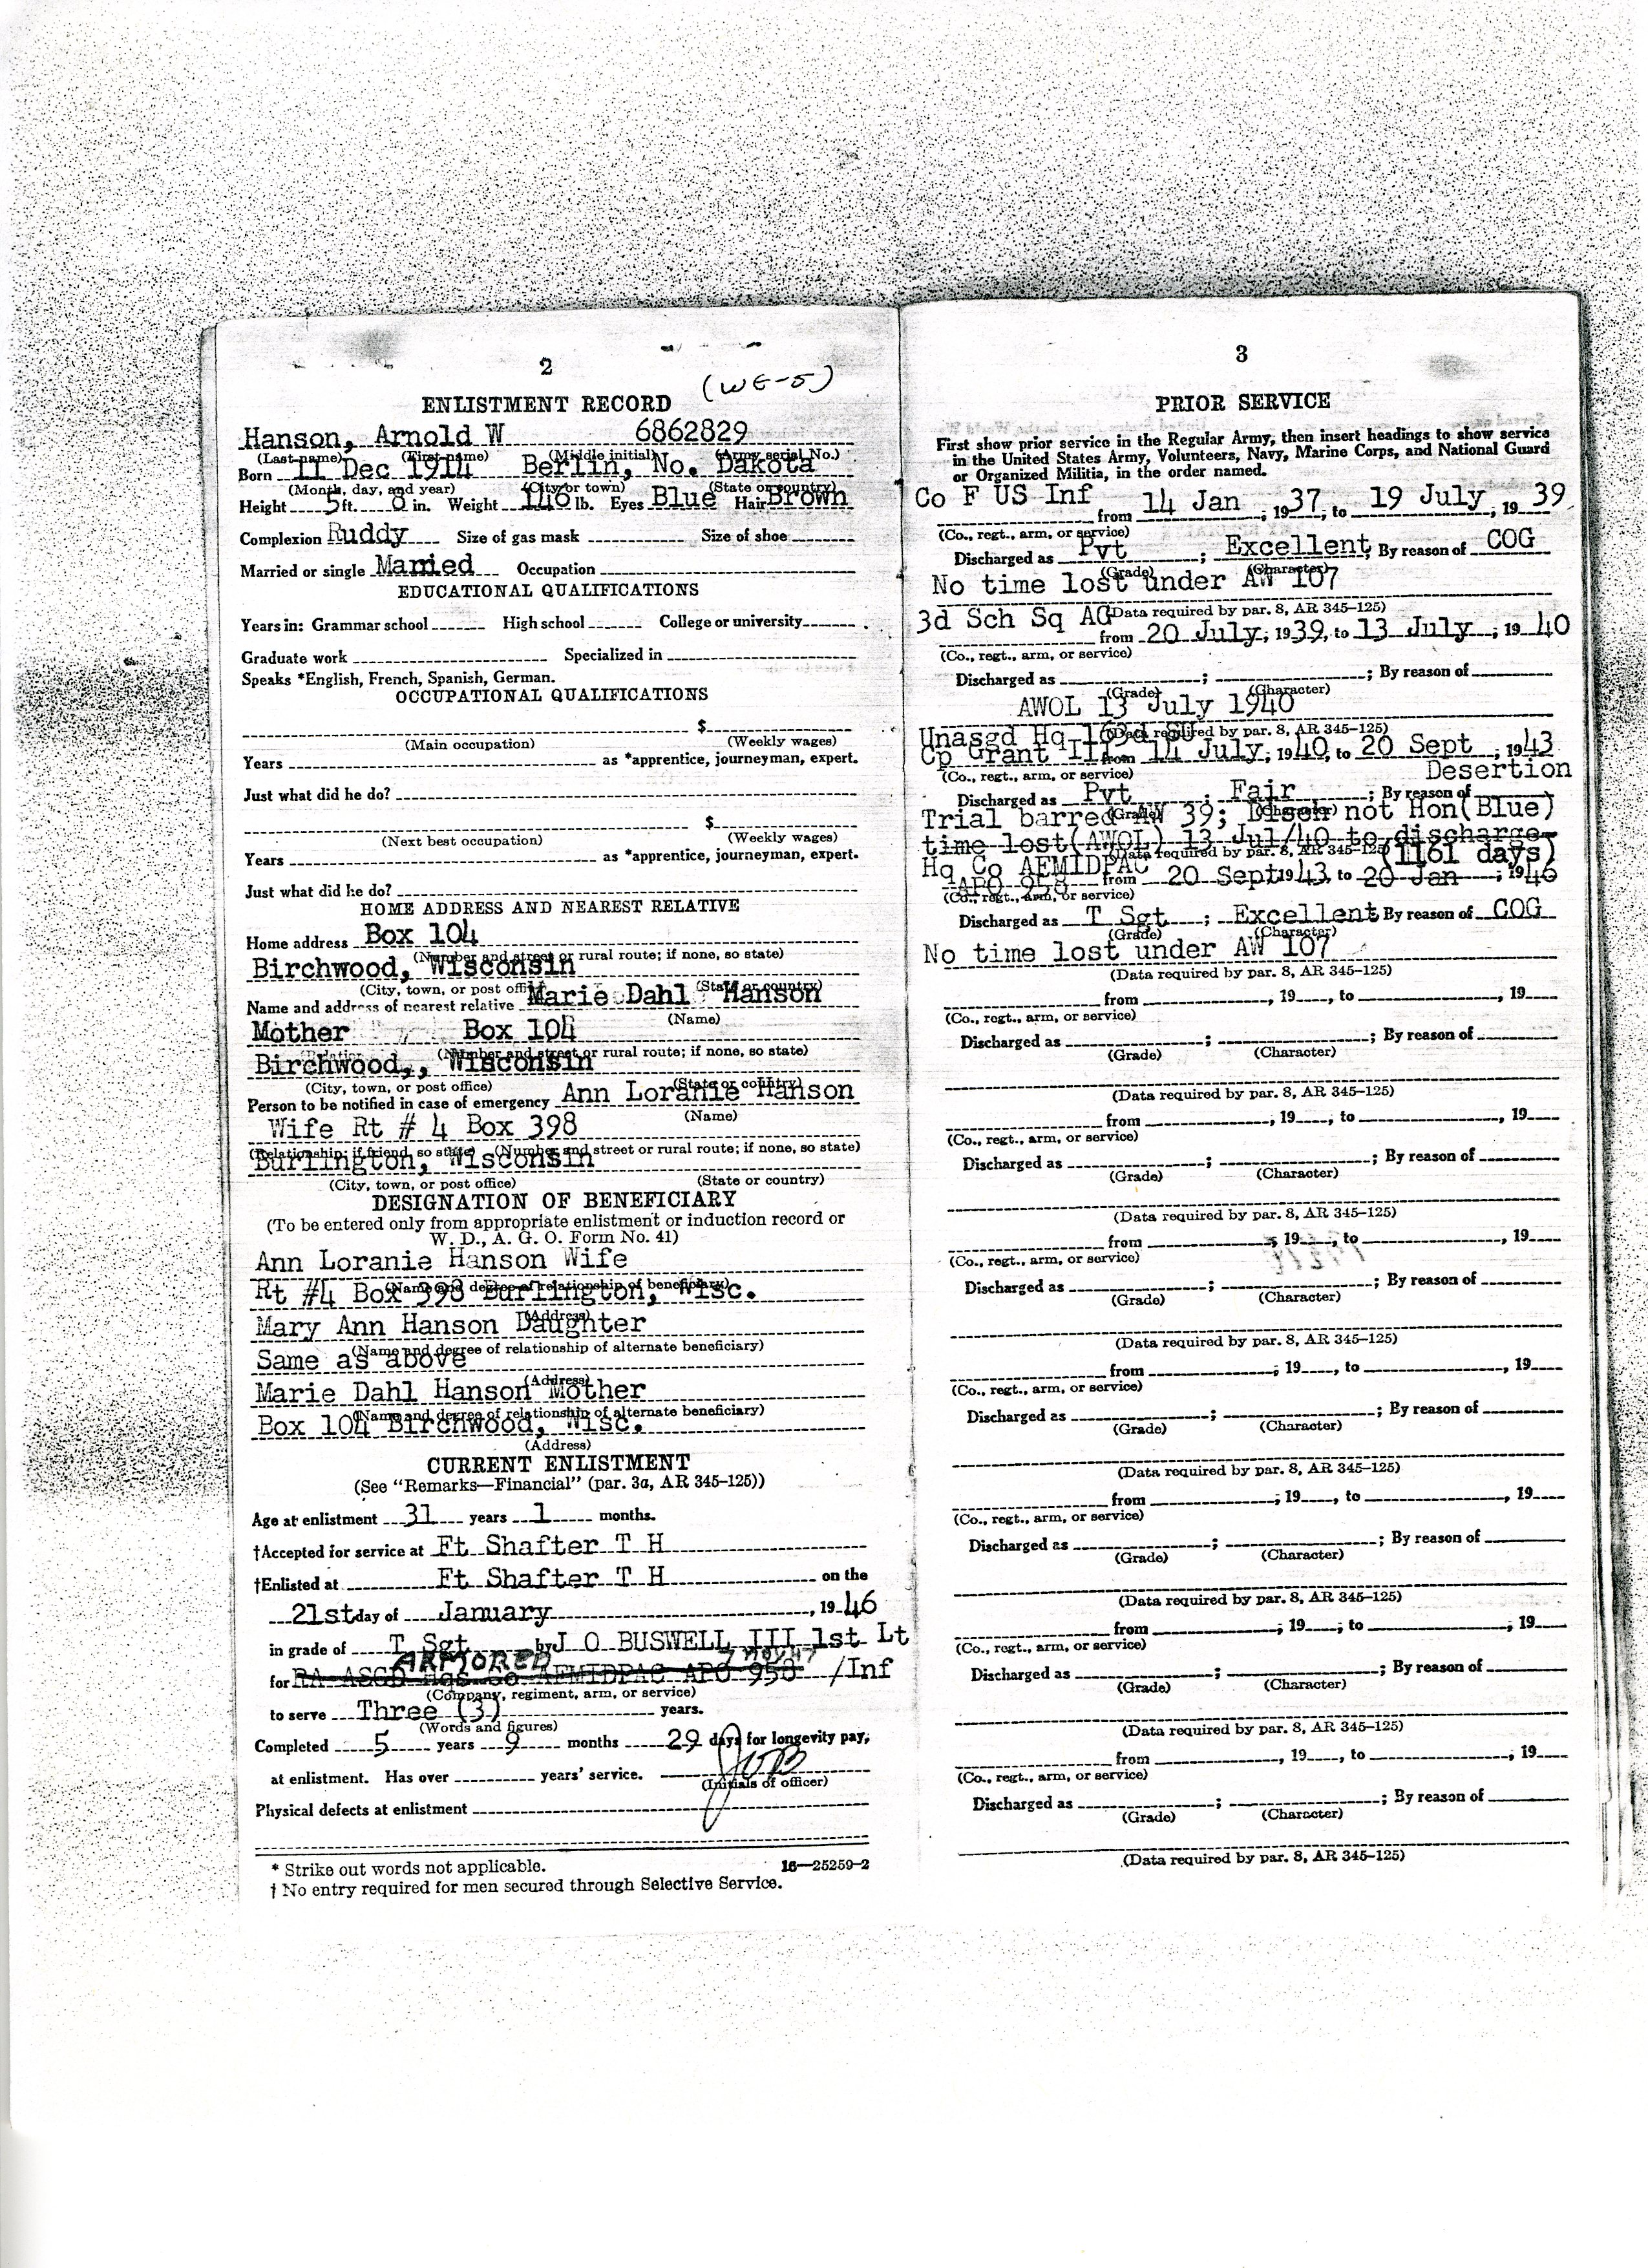 2
(WE-5)
ENLISTMENT RECORD
Hanson, Arnold W 6862829
(Last name) (First name) (Middle initial) (Army serial No.)
Born 11 Dec 1914 Berlin, No. Dakota
(Month, day, and year) (City or town) (State or country)
Height 5 ft. 8 in. Weight 146 lb. Eyes Blue Hair Brown
Complexion Ruddy Size of gas mask Size of shoe
Married or single Married Occupation
EDUCATIONAL QUALIFICATIONS
Years in: Grammar school High school College or university
Graduate work Specialized in
Speaks *English, French, Spanish, German.
OCCUPATIONAL QUALIFICATIONS
$
(Main occupation) (Weekly wages)
Years as *apprentice, journeyman, expert.
Just what did he do?
$
(Next best occupation) (Weekly wages)
Years as *apprentice, journeyman, expert.
Just what did he do?
HOME ADDRESS AND NEAREST RELATIVE
Home address Box 104
(Number and street or rural route; if none, so state)
Birchwood, Wisconsin
(City, town, or post office) (State or country)
Name and address of nearest relative Marie Dahl Hanson
(Name)
Mother Box 104
(Number and street or rural route; if none, so state)
Birchwood,, Wisconsin
(City, town, or post office) (State or country)
Person to be notified in case of emergency Ann Loranie Hanson
(Name)
Wife Rt # 4 Box 398
(Relationship; if friend, so state) (Number and street or rural route; if none, so state)
Burlington, Wisconsin
(City, town, or post office) (State or country)
DESIGNATION OF BENEFICIARY
(To be entered only from appropriate enlistment or induction record or
W. D., A. G. O. Form No. 41)
Ann Loranie Hanson Wife
(Name and degree of relationship of beneficiary)
Rt #4 Box 398 Burlington, Wisc.
(Address)
Mary Ann Hanson Daughter
(Name and degree of relationship of alternate beneficiary)
Same as above
(Address)
Marie Dahl Hanson Mother
(Name and degree of relationship of alternate beneficiary)
Box 104 Birchwood, Wisc.
(Address)
CURRENT ENLISTMENT
(See "Remarks—Financial" (par. 3a, AR 345–125))
Age at enlistment 31 years 1 months.
†Accepted for service at Ft Shafter T H
†Enlisted at Ft Shafter T H on the
21st day of January, 19 46
in grade of T Sgt by J O BUSWELL III 1st Lt
ARMORED 7 Nov 47
for RA ASGD Hqs Co AFMIDPAC APO 958 /Inf
(Company, regiment, arm, or service)
to serve Three (3) years.
(Words and figures)
Completed 5 years 9 months 29 days for longevity pay,
at enlistment. Has over years' service. JOB
(Initials of officer)
Physical defects at enlistment
* Strike out words not applicable. 16—25259-2
† No entry required for men secured through Selective Service.
3
PRIOR SERVICE
First show prior service in the Regular Army, then insert headings to show service
in the United States Army, Volunteers, Navy, Marine Corps, and National Guard
or Organized Militia, in the order named.
Co F US Inf from 14 Jan, 1937, to 19 July, 19 39
(Co., regt., arm, or service)
Discharged as Pvt ; Excellent; By reason of COG
(Grade) (Character)
No time lost under AW 107
(Data required by par. 8, AR 345–125)
3d Sch Sq AC
from 20 July, 1939, to 13 July, 19 40
(Co., regt., arm, or service)
Discharged as ; ; By reason of
(Grade) (Character)
AWOL 13 July 1940
(Data required by par. 8, AR 345–125)
Unasgd Hq 163d SU
Cp Grant Ill from 14 July, 1940, to 20 Sept, 1943
(Co., regt., arm, or service)
Desertion
Discharged as Pvt ; Fair ; By reason of
(Grade) (Character)
Trial barred AW 39; Disch not Hon(Blue)
time lost(AWOL) 13 Jul/40 to discharge
(Data required by par. 8, AR 345–125)
(1161 days)
Hq Co AFMIDPAC
APO 958 from 20 Sept 1943, to 20 Jan, 1946
(Co., regt., arm, or service)
Discharged as T Sgt ; Excellent By reason of COG
(Grade) (Character)
No time lost under AW 107
(Data required by par. 8, AR 345–125)
from , 19 , to , 19
(Co., regt., arm, or service)
Discharged as ; ; By reason of
(Grade) (Character)
(Data required by par. 8, AR 345–125)
from , 19 , to , 19
(Co., regt., arm, or service)
Discharged as ; ; By reason of
(Grade) (Character)
(Data required by par. 8, AR 345–125)
from , 19 , to , 19
(Co., regt., arm, or service)
Discharged as ; ; By reason of
(Grade) (Character)
(Data required by par. 8, AR 345–125)
from ; 19 , to , 19
(Co., regt., arm, or service)
Discharged as ; ; By reason of
(Grade) (Character)
(Data required by par. 8, AR 345–125)
from ; 19 , to , 19
(Co., regt., arm, or service)
Discharged as ; ; By reason of
(Grade) (Character)
(Data required by par. 8, AR 345–125)
from ; 19 ; to , 19
(Co., regt., arm, or service)
Discharged as ; ; By reason of
(Grade) (Character)
(Data required by par. 8, AR 345–125)
from , 19 , to , 19
(Co., regt., arm, or service)
Discharged as ; ; By reason of
(Grade) (Character)
(Data required by par. 8, AR 345–125)